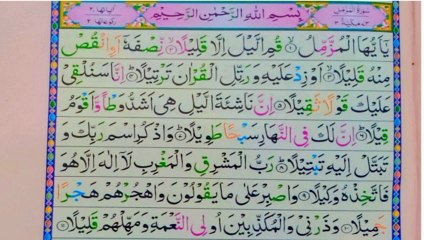 سُوْرَةُ الْمُزَّمِّل بِسْمِ اللّٰهِ الرَّحْمٰنِ الرَّحِيْمِ
يٰٓاَيُّهَا الْمُزَّمِّلُ ۙ﴿۱﴾ قُمِ الَّيْلَ اِلَّا قَلِيْلًا ۙ﴿۲﴾ نِّصْفَهٗۤ اَوِ انْقُصْ
مِنْهُ قَلِيْلًا ۙ﴿۳﴾ اَوْ زِدْ عَلَيْهِ وَرَتِّلِ الْقُرْاٰنَ تَرْتِيْلًا ؕ﴿۴﴾ اِنَّا سَنُلْقِيْ
عَلَيْكَ قَوْلًا ثَقِيْلًا ﴿۵﴾ اِنَّ نَاشِئَةَ الَّيْلِ هِيَ اَشَدُّ وَطْاً وَّاَقْوَمُ
قِيْلًا ؕ﴿۶﴾ اِنَّ لَكَ فِي النَّهَارِ سَبْحًا طَوِيْلًا ؕ﴿۷﴾ وَاذْكُرِ اسْمَ رَبِّكَ وَ
تَبَتَّلْ اِلَيْهِ تَبْتِيْلًا ؕ﴿۸﴾ رَبُّ الْمَشْرِقِ وَالْمَغْرِبِ لَاۤ اِلٰهَ اِلَّا هُوَ
فَاتَّخِذْهُ وَكِيْلًا ﴿۹﴾ وَاصْبِرْ عَلٰى مَا يَقُوْلُوْنَ وَاهْجُرْهُمْ هَجْرًا
جَمِيْلًا ﴿۱۰﴾ وَذَرْنِيْ وَالْمُكَذِّبِيْنَ اُولِي النَّعْمَةِ وَمَهِّلْهُمْ قَلِيْلًا ﴿۱۱﴾